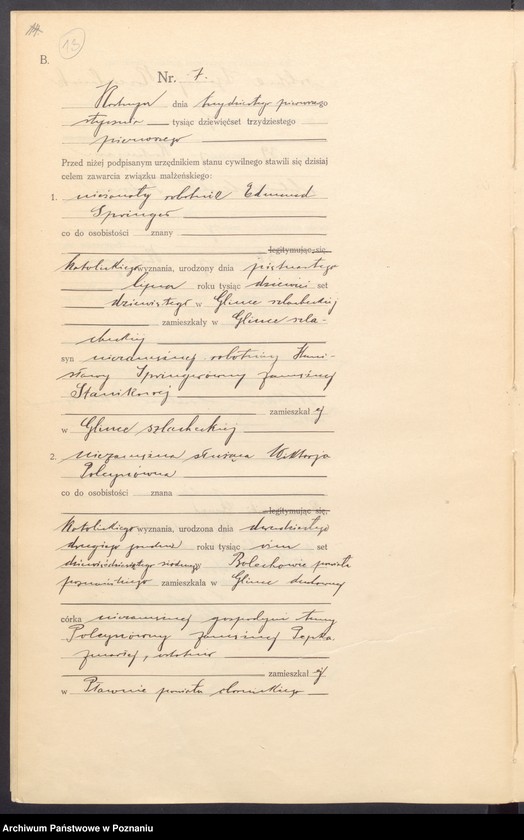 13
B.
Nr. 7.
dnia trzydziestego pierwszego
stycznia tysiąc dziewięćset trzydziestego
pierwszego
Przed niżej podpisanym urzędnikiem stanu cywilnego stawili się dzisiaj
celem zawarcia związku małżeńskiego:
1. nieżonaty robotnik Edmund
Springer
co do osobistości znany
legitymując się
katolickiego wyznania, urodzony dnia piętnastego
lipca roku tysiąc dziewięć set
dziewiątego w Glince szlacheckiej
zamieszkały w Glince szla-
checkiej
syn niezamężnej robotnicy Stani-
sławy Springerówny zamężnej
w Glince szlacheckiej
zamieszkał ej
2. niezamężna służąca Wiktorja
Polcynówna
co do osobistości znana
legitymując się
katolickiego wyznania, urodzona dnia dwudziestego
drugiego grudnia roku tysiąc ośm set
dziewięćdziesiątego siódmego Bolechowie powiatu
poznańskiego zamieszkała w Glince duchownej
córka niezamężnej gospodyni
Polcynówny zamężnej
zmarłej,
zamieszkał ej
w powiatu
Archiwum Państwowe w Poznaniu